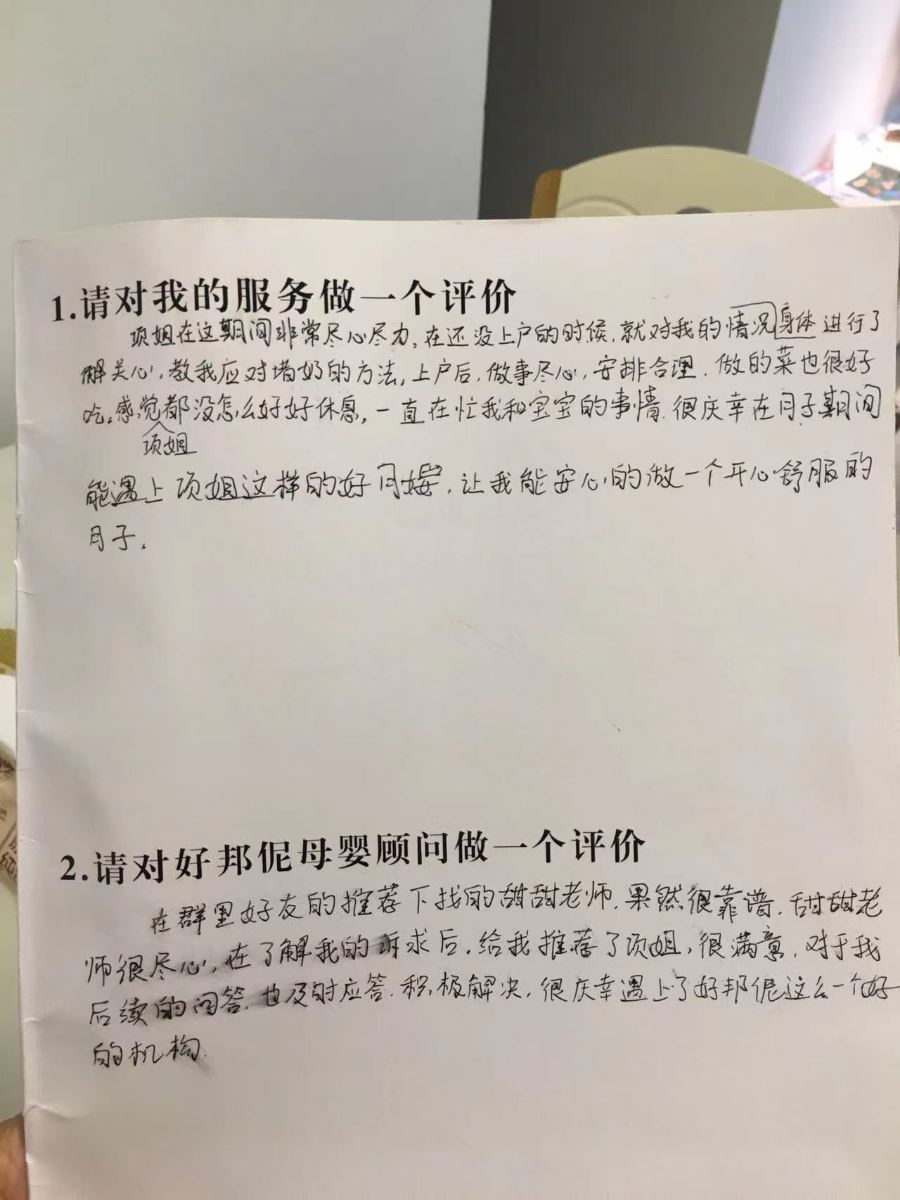 1.请对我的服务做一个评价
项姐在这期间非常尽心尽力,在还没上户的时候,就对我的情况身体进行了
解关心,教我应对堵奶的方法,上户后,做事尽心,安排合理.做的菜也很好
吃。感觉都没怎么好好休息,一直在忙我和宝宝的事情.很庆幸在月子期间
项姐
能遇上项姐这样的好月嫂,让我能安心的做一个开心舒服的
月子.
2.请对好邦伲母婴顾问做一个评价
在群里好友的推荐下找的甜甜老师.果然很靠谱.甜甜老
师很尽心,在了解我的诉求后,给我推荐了项姐,很满意.对于我
后续的问答.也及时应答.积极解决,很庆幸遇上了好邦伲这么一个好
的机构.